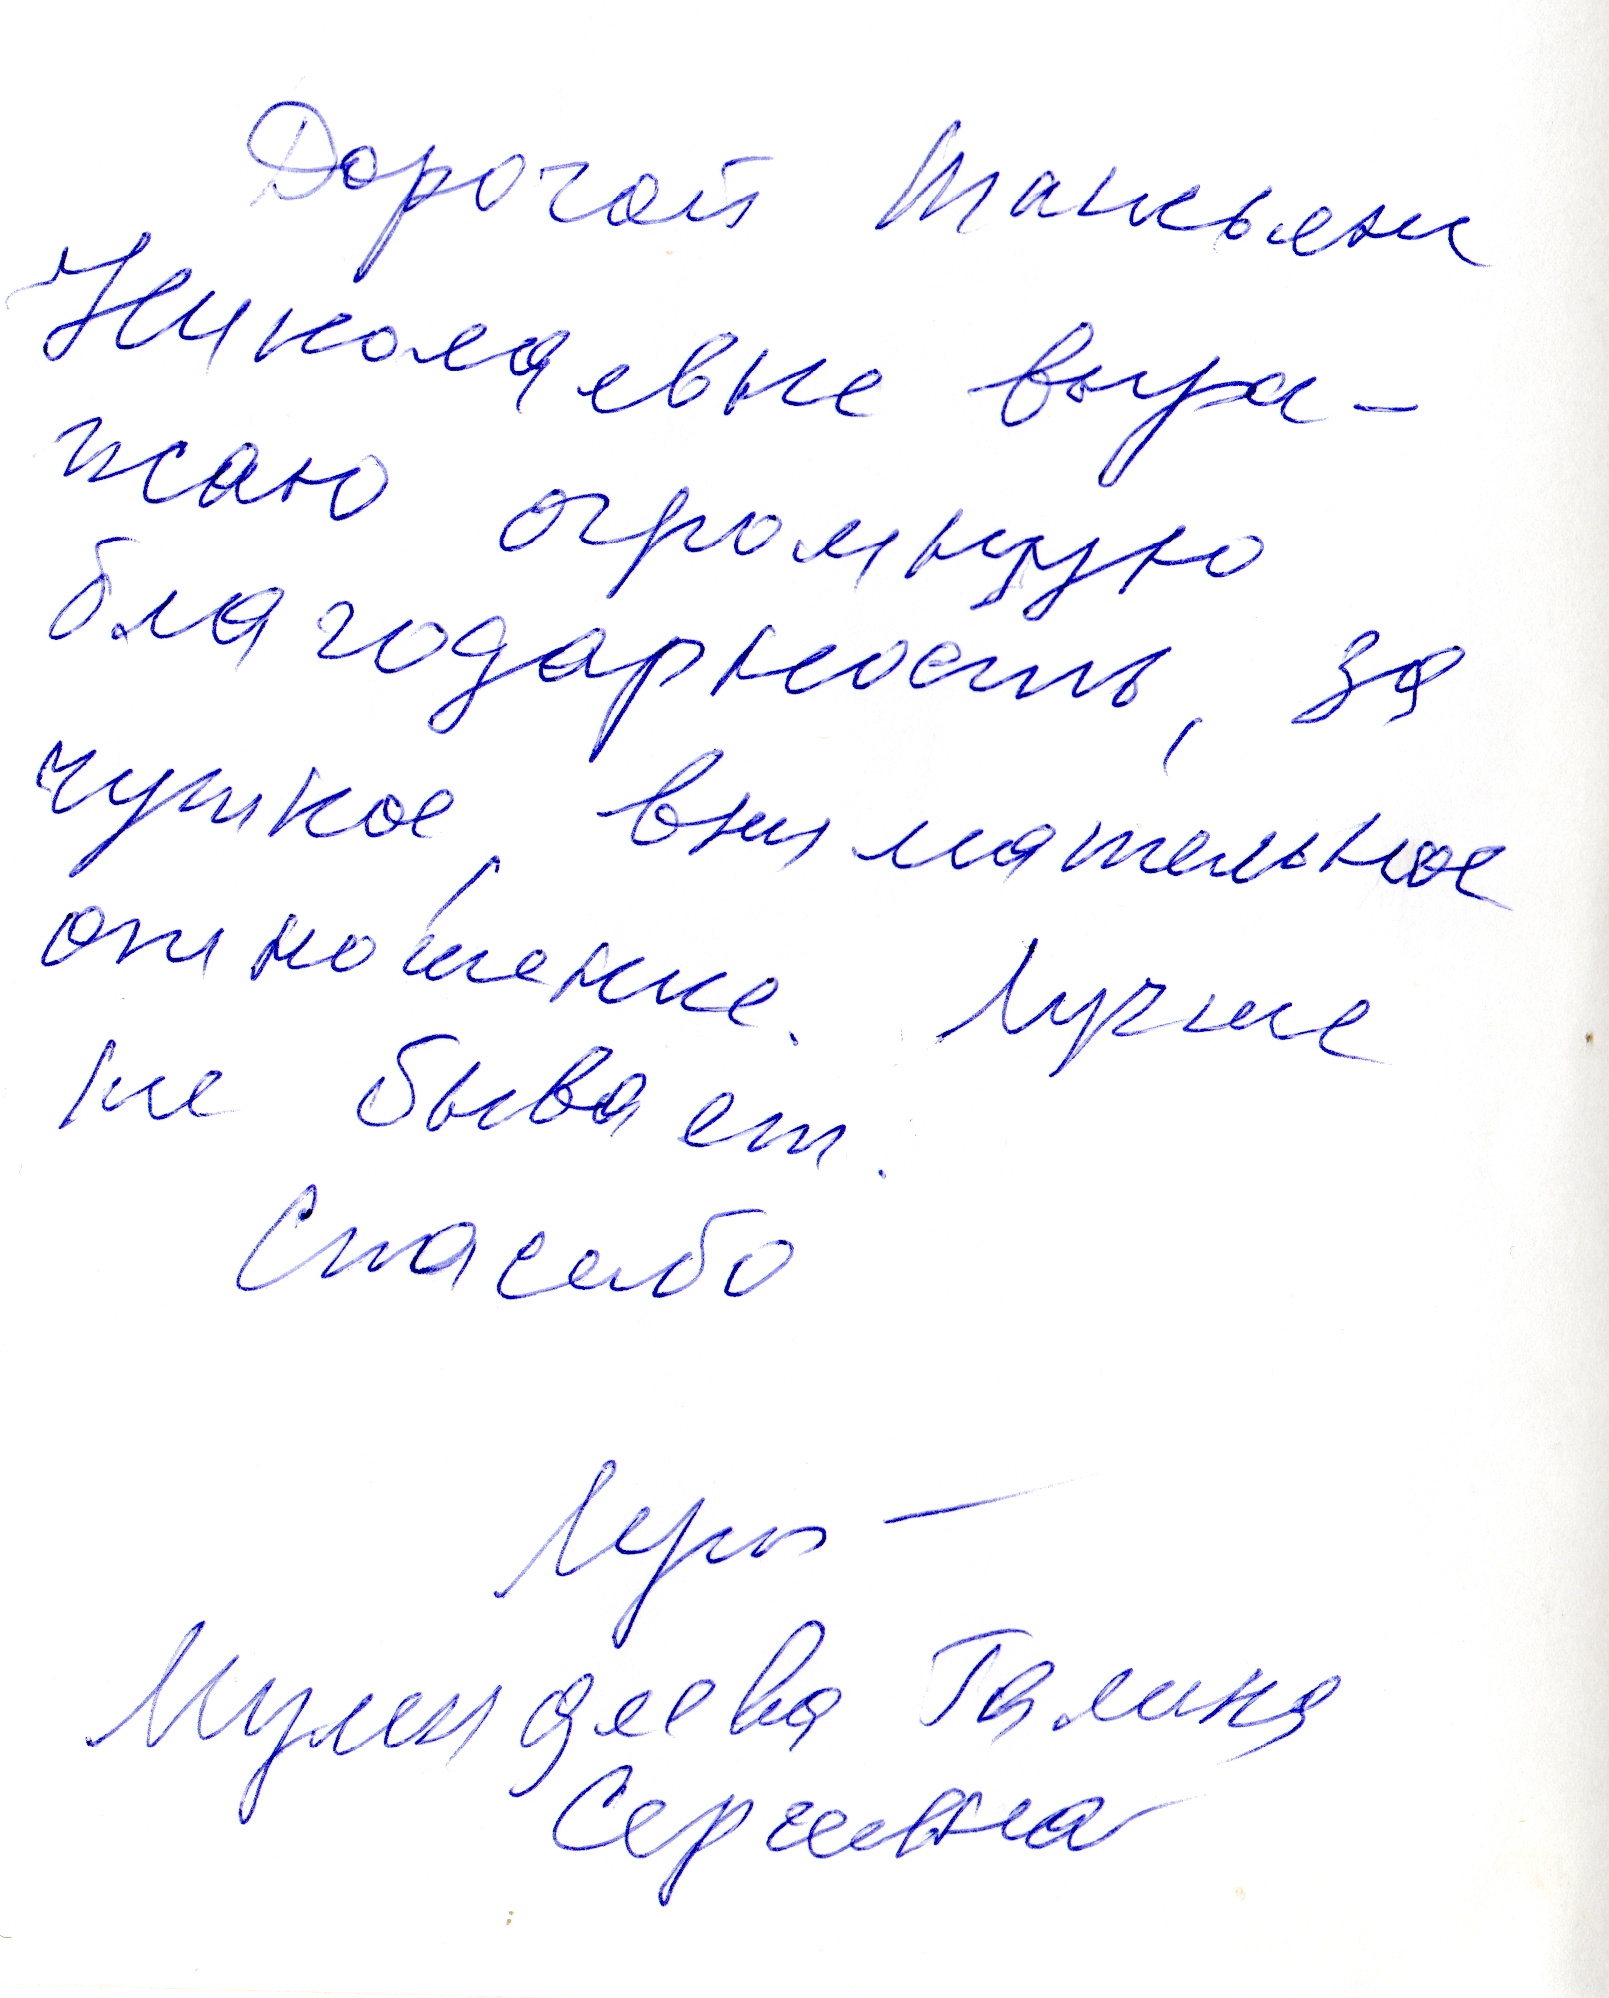 Дорогой Татьяне
Николаевне выра-
жаю огромную
благодарность, за
чуткое, внимательное
отношение. Лучше
не бывает.
Спасибо
Галина
Сергеевна